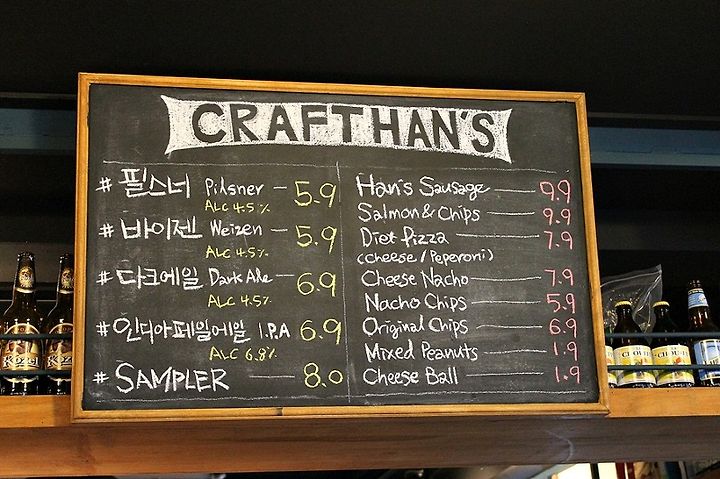 CRAFTHAN'S
# 필스너 Pilsner 5.9
ALC 4.5%
# 바이젠 Weizen 5.9
ALC 4.5%
# 다크에일 Dark Ale 6.9
ALC 4.5%
# 인디아페일에일 I.P.A 6.9
ALC 6.8%
# SAMPLER 8.0
Han's Sausage 9.9
Salmon & Chips 9.9
Diet Pizza 7.9
(Cheese / Peperoni)
Cheese Nacho 7.9
Nacho Chips 5.9
Original Chips 6.9
Mixed Peanuts 1.9
Cheese Ball 1.9
Kozel
Kozel